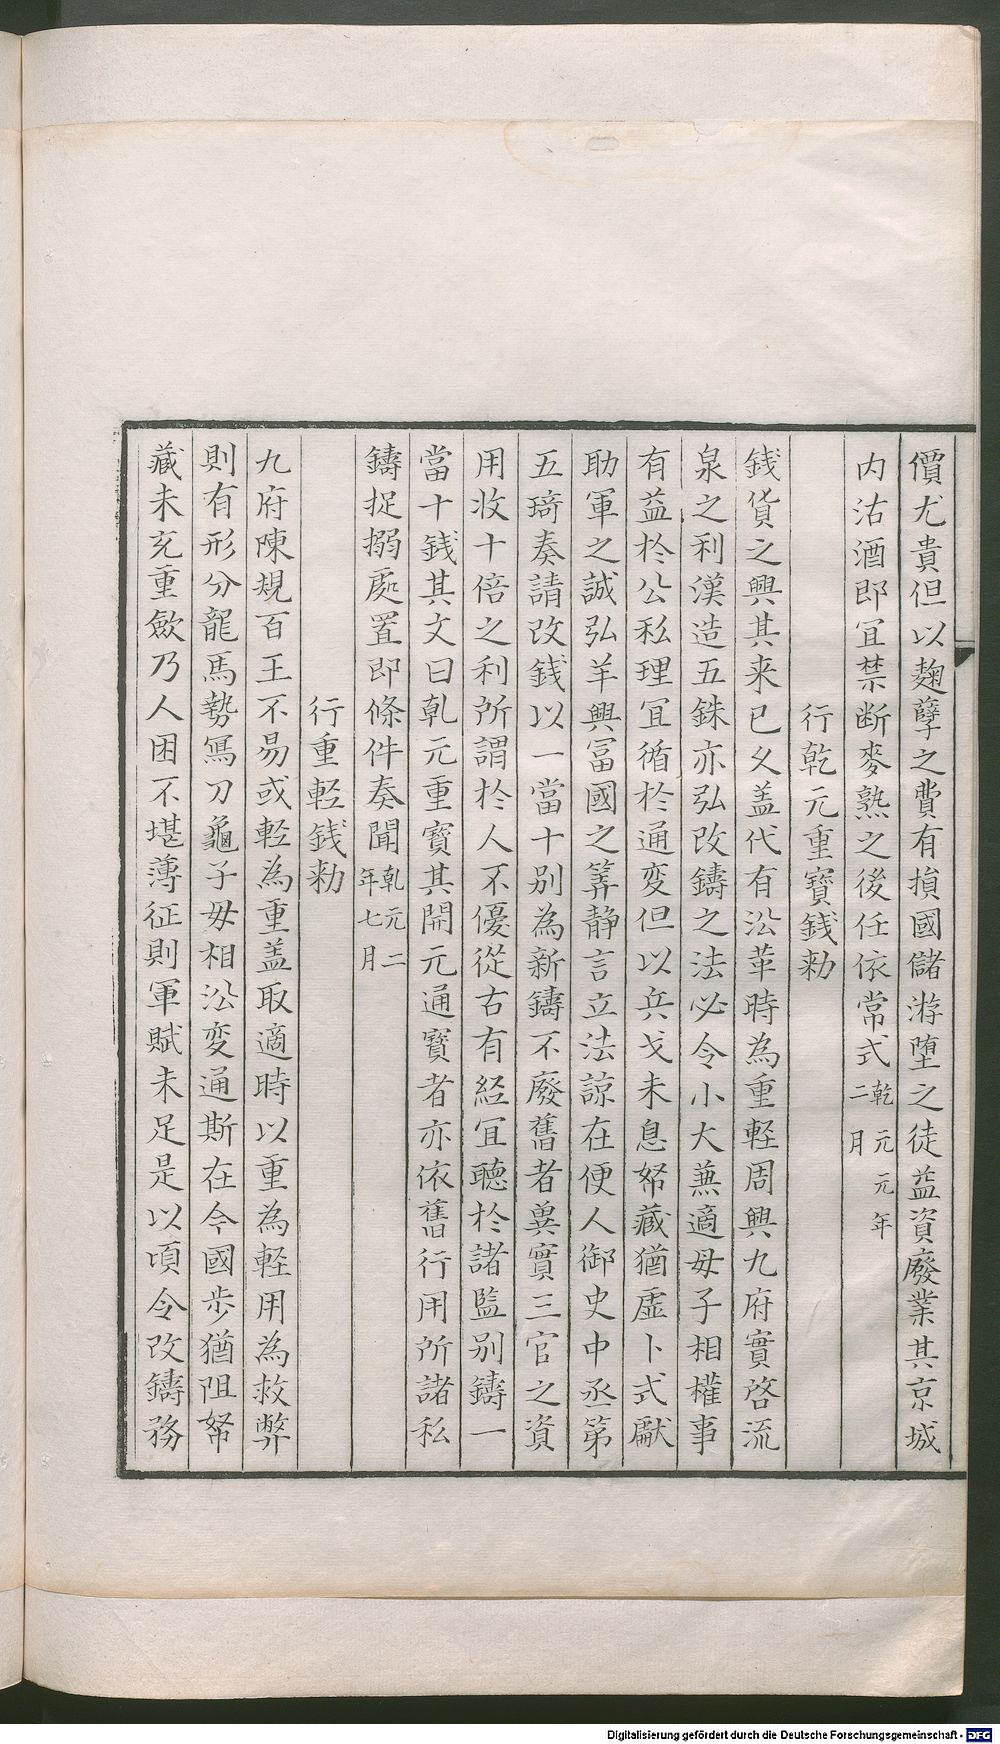 價尤貴但以麴孽之費有損國儲游墮之徒益資廢業其京城
内沽酒即冝禁断麥熟之後任依常式乾元元年二月
行乾元重寶錢勑
錢貨之興其来已乆盖代有㳂革時為重軽周興九府實啓流
泉之利漢造五銖亦弘改鑄之法必令小大蕪適毋子相權事
有益於公私理冝循於通变但以兵戈未息帑藏猶虚卜式獻
助軍之誠弘羊興冨國之筭静言立法諒在便人御史中丞第
五琦奏請改錢以一當十别為新鑄不廢舊者兾實三官之資
用收十倍之利所謂於人不優從古有経冝聽於諸監别鑄一
當十錢其文曰乹元重寳其開元通寳者亦依舊行用所諸私
鑄捉搦處置即條件奏聞乹元二年七月
行重軽錢勑
九府陳規百王不易或軽為重盖取適時以重為軽用為救弊
則有形分龍馬勢冩刀龜子毋相㳂变通斯在今國步猶阻帑
藏未充重斂乃人困不堪薄征則軍賦未足是以頃令改鑄務
Digitalisierung gefördert durch die Deutsche Forschungsgemeinschaft - DFG